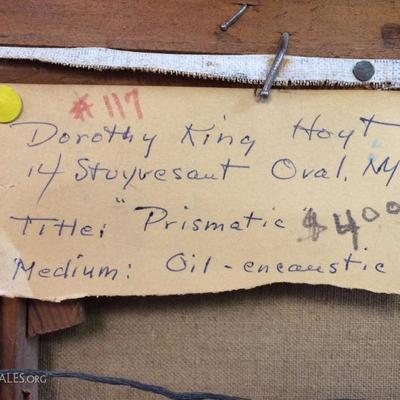 #117
Dorothy King Hoyt
14 Stuyvesant Oval, NY
Title: "Prismatic" $400
Medium: Oil-encaustic
ALES.ORG